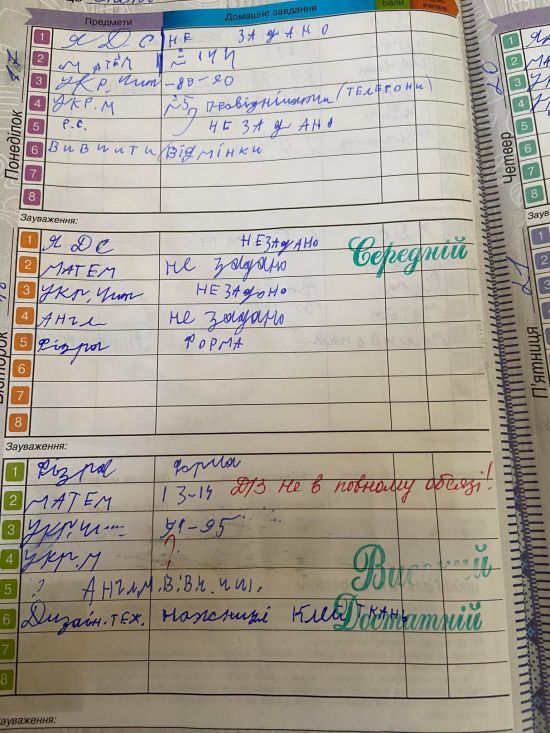 Предмети Домашнє завдання Бали
Понеділок
1 Я Д С НЕ ЗАДАНО
2 МАТЕМ № 144
3 УКР. Чит -89-90
4 УКР. М №5 (ТЕЛЕФОНИ)
5 Р.С. НЕ ЗАДАНО
6 ВИВЧИТИ ВІДМІНКИ
7
8
Зауваження:
1 Я ДС НЕ ЗАДАНО
2 МАТЕМ не задано
3 УКР. Чит НЕ ЗАДАНО
4 Англ не задано
5 Фізра ФОРМА
6
7
8
Середній
Зауваження:
1 Фізра форма
2 МАТЕМ 13-14 Д/З не в повному обсязі!
3 91-95
4 Укр. М ?
5 ?
6 Дизайн. тех. ножниці клей ткань
7
8
Високий
Достатній
Зауваження:
Четвер
20
1
2
3
4
5
6
7
8
21
П'ятниця